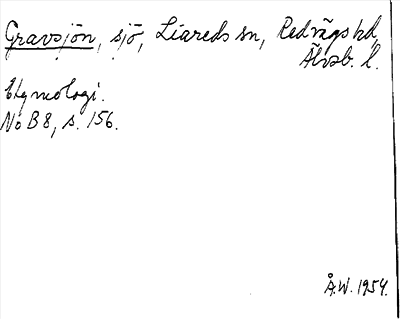 Gravsjön, sjö, Liareds sn, Redvägs hd,
Älvsb. l.
Etymologi.
No B 8, s. 156.
Å.W. 1954.